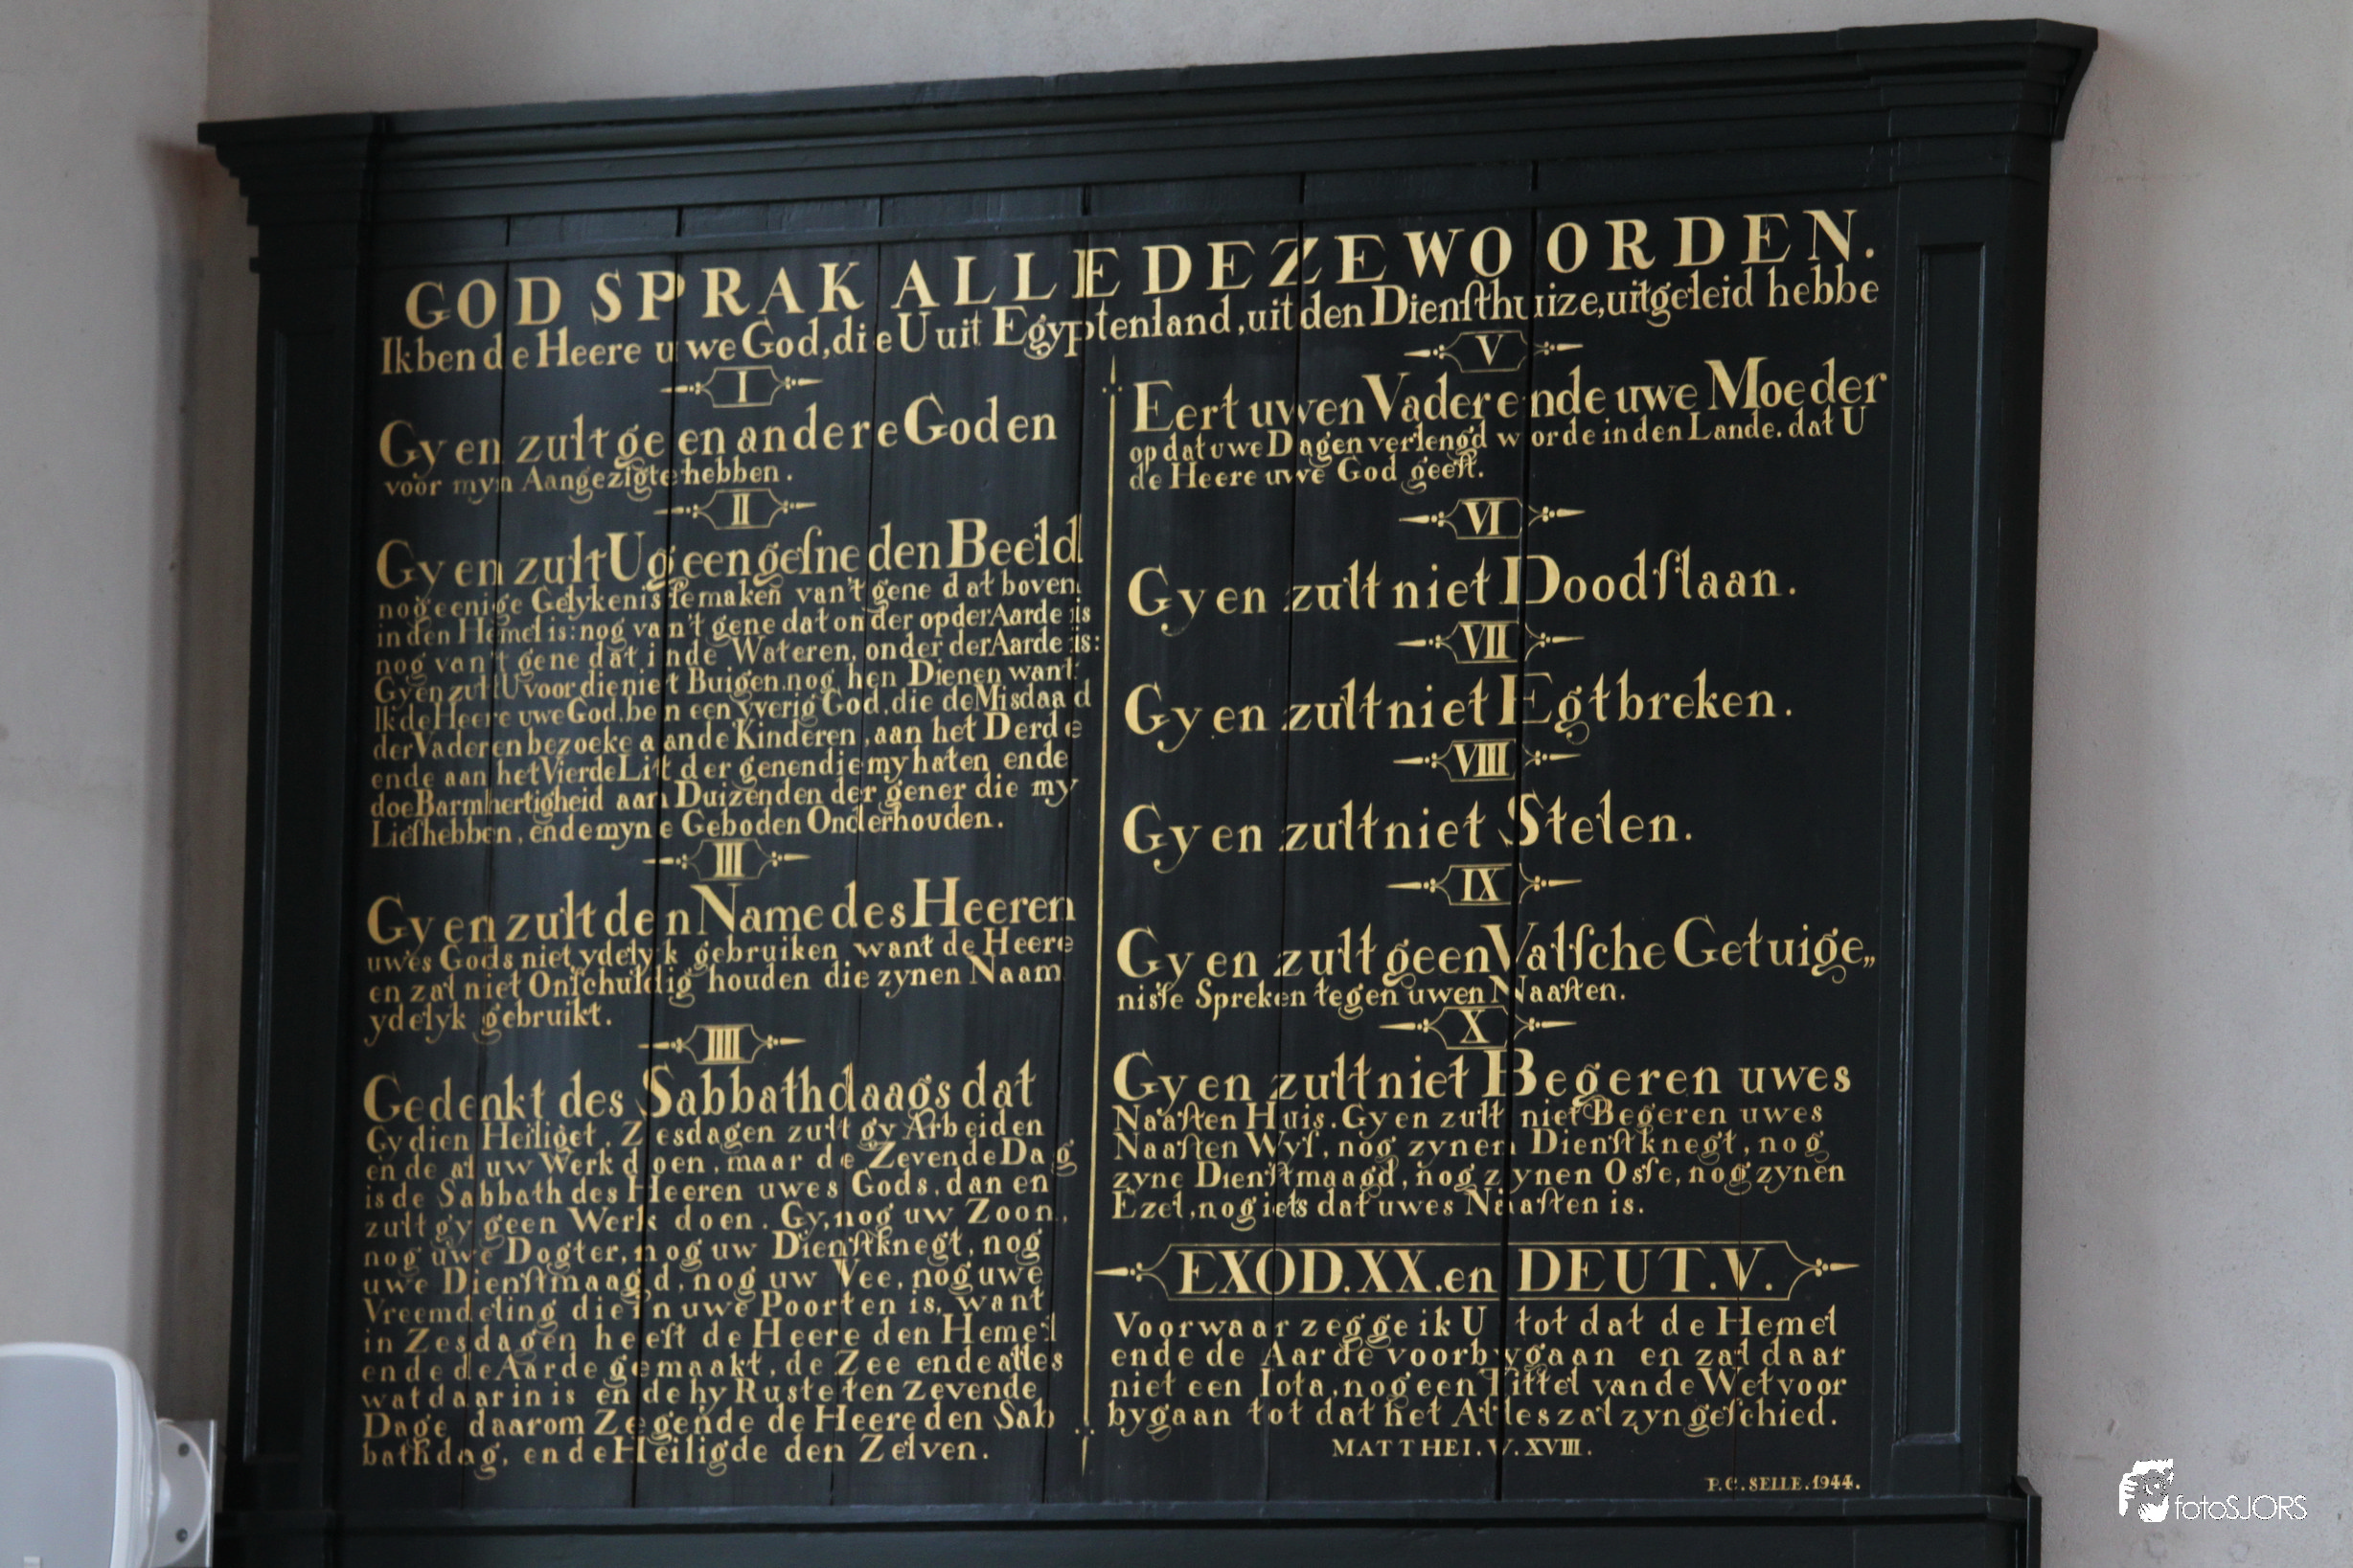 GOD SPRAK ALLE DEZE WOORDEN.
Ik ben de Heere uwe God, die U uit Egyptenland, uit den Dienſthuize, uitgeleid hebbe
I
Gy en zult geen andere Goden
voor myn Aangezigte hebben.
II
Gy en zult U geen geſneden Beeld
nog eenige Gelykeniſſe maken van't gene dat boven
in den Hemel is: nog van't gene dat onder op der Aarde is
nog van't gene dat in de Wateren, onder der Aarde is:
Gy en zult U voor die niet Buigen, nog hen Dienen want
Ik de Heere uwe God, ben een yverig God, die de Misdaad
der Vaderen bezoeke aan de Kinderen, aan het Derde
ende aan het Vierde Lit der genen die my haten ende
doe Barmhertigheid aan Duizenden der gener die my
Liefhebben, ende myne Geboden Onderhouden.
III
Gy en zult den Name des Heeren
uwes Gods niet ydelyk gebruiken want de Heere
en zal niet Onſchuldig houden die zynen Naam
ydelyk gebruikt.
IIII
Gedenkt des Sabbathdaags dat
Gy dien Heiliget. Zesdagen zult gy Arbeiden
ende al uw Werk doen, maar de Zevende Dag
is de Sabbath des Heeren uwes Gods, dan en
zult gy geen Werk doen. Gy, nog uw Zoon,
nog uwe Dogter, nog uw Dienſtknegt, nog
uwe Dienſtmaagd, nog uw Vee, nog uwe
Vreemdeling die in uwe Poorten is, want
in Zesdagen heeft de Heere den Hemel
ende de Aarde gemaakt, de Zee ende alles
wat daar in is ende hy Ruste ten Zevende
Dage daarom Zegende de Heere den Sab
bathdag, ende Heiligde den Zelven.
V
Eert uwen Vader ende uwe Moeder
op dat uwe Dagen verlengd worde in den Lande. dat U
de Heere uwe God geeft.
VI
Gy en zult niet Doodſlaan.
VII
Gy en zult niet Egtbreken.
VIII
Gy en zult niet Stelen.
IX
Gy en zult geen Valſche Getuige„
nisſe Spreken tegen uwen Naaſten.
X
Gy en zult niet Begeren uwes
Naaſten Huis. Gy en zult niet Begeren uwes
Naaſten Wyf, nog zynen Dienſtknegt, nog
zyne Dienſtmaagd, nog zynen Osſe, nog zynen
Ezel, nog iets dat uwes Naaſten is.
EXOD. XX. en DEUT. V.
Voorwaar zegge ik U tot dat de Hemel
ende de Aarde voorbygaan en zal daar
niet een Iota, nog een Tittel van de Wet voor
bygaan tot dat het Alles zal zyn geſchied.
MATTHEI. V. XVIII.
P. C. SELLE. 1944.
fotoSJORS